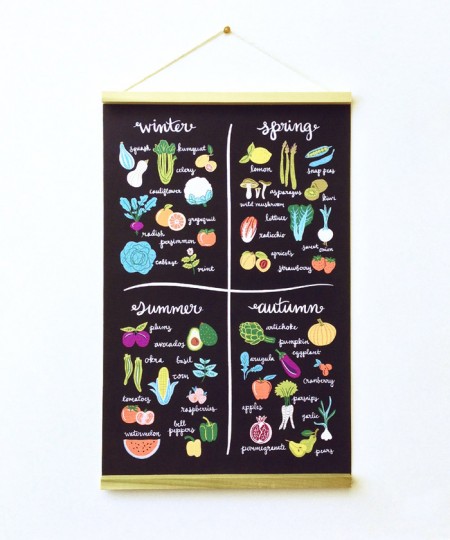 winter
squash
kumquat
celery
cauliflower
grapefruit
radish
persimmon
cabbage
mint
spring
lemon
snap peas
asparagus
kiwi
wild mushroom
lettuce
radicchio
sweet onion
apricots
strawberry
summer
plums
avocados
okra
basil
corn
tomatoes
raspberries
bell
peppers
watermelon
autumn
artichoke
pumpkin
eggplant
arugula
cranberry
parsnips
apples
garlic
pomegranate
pears